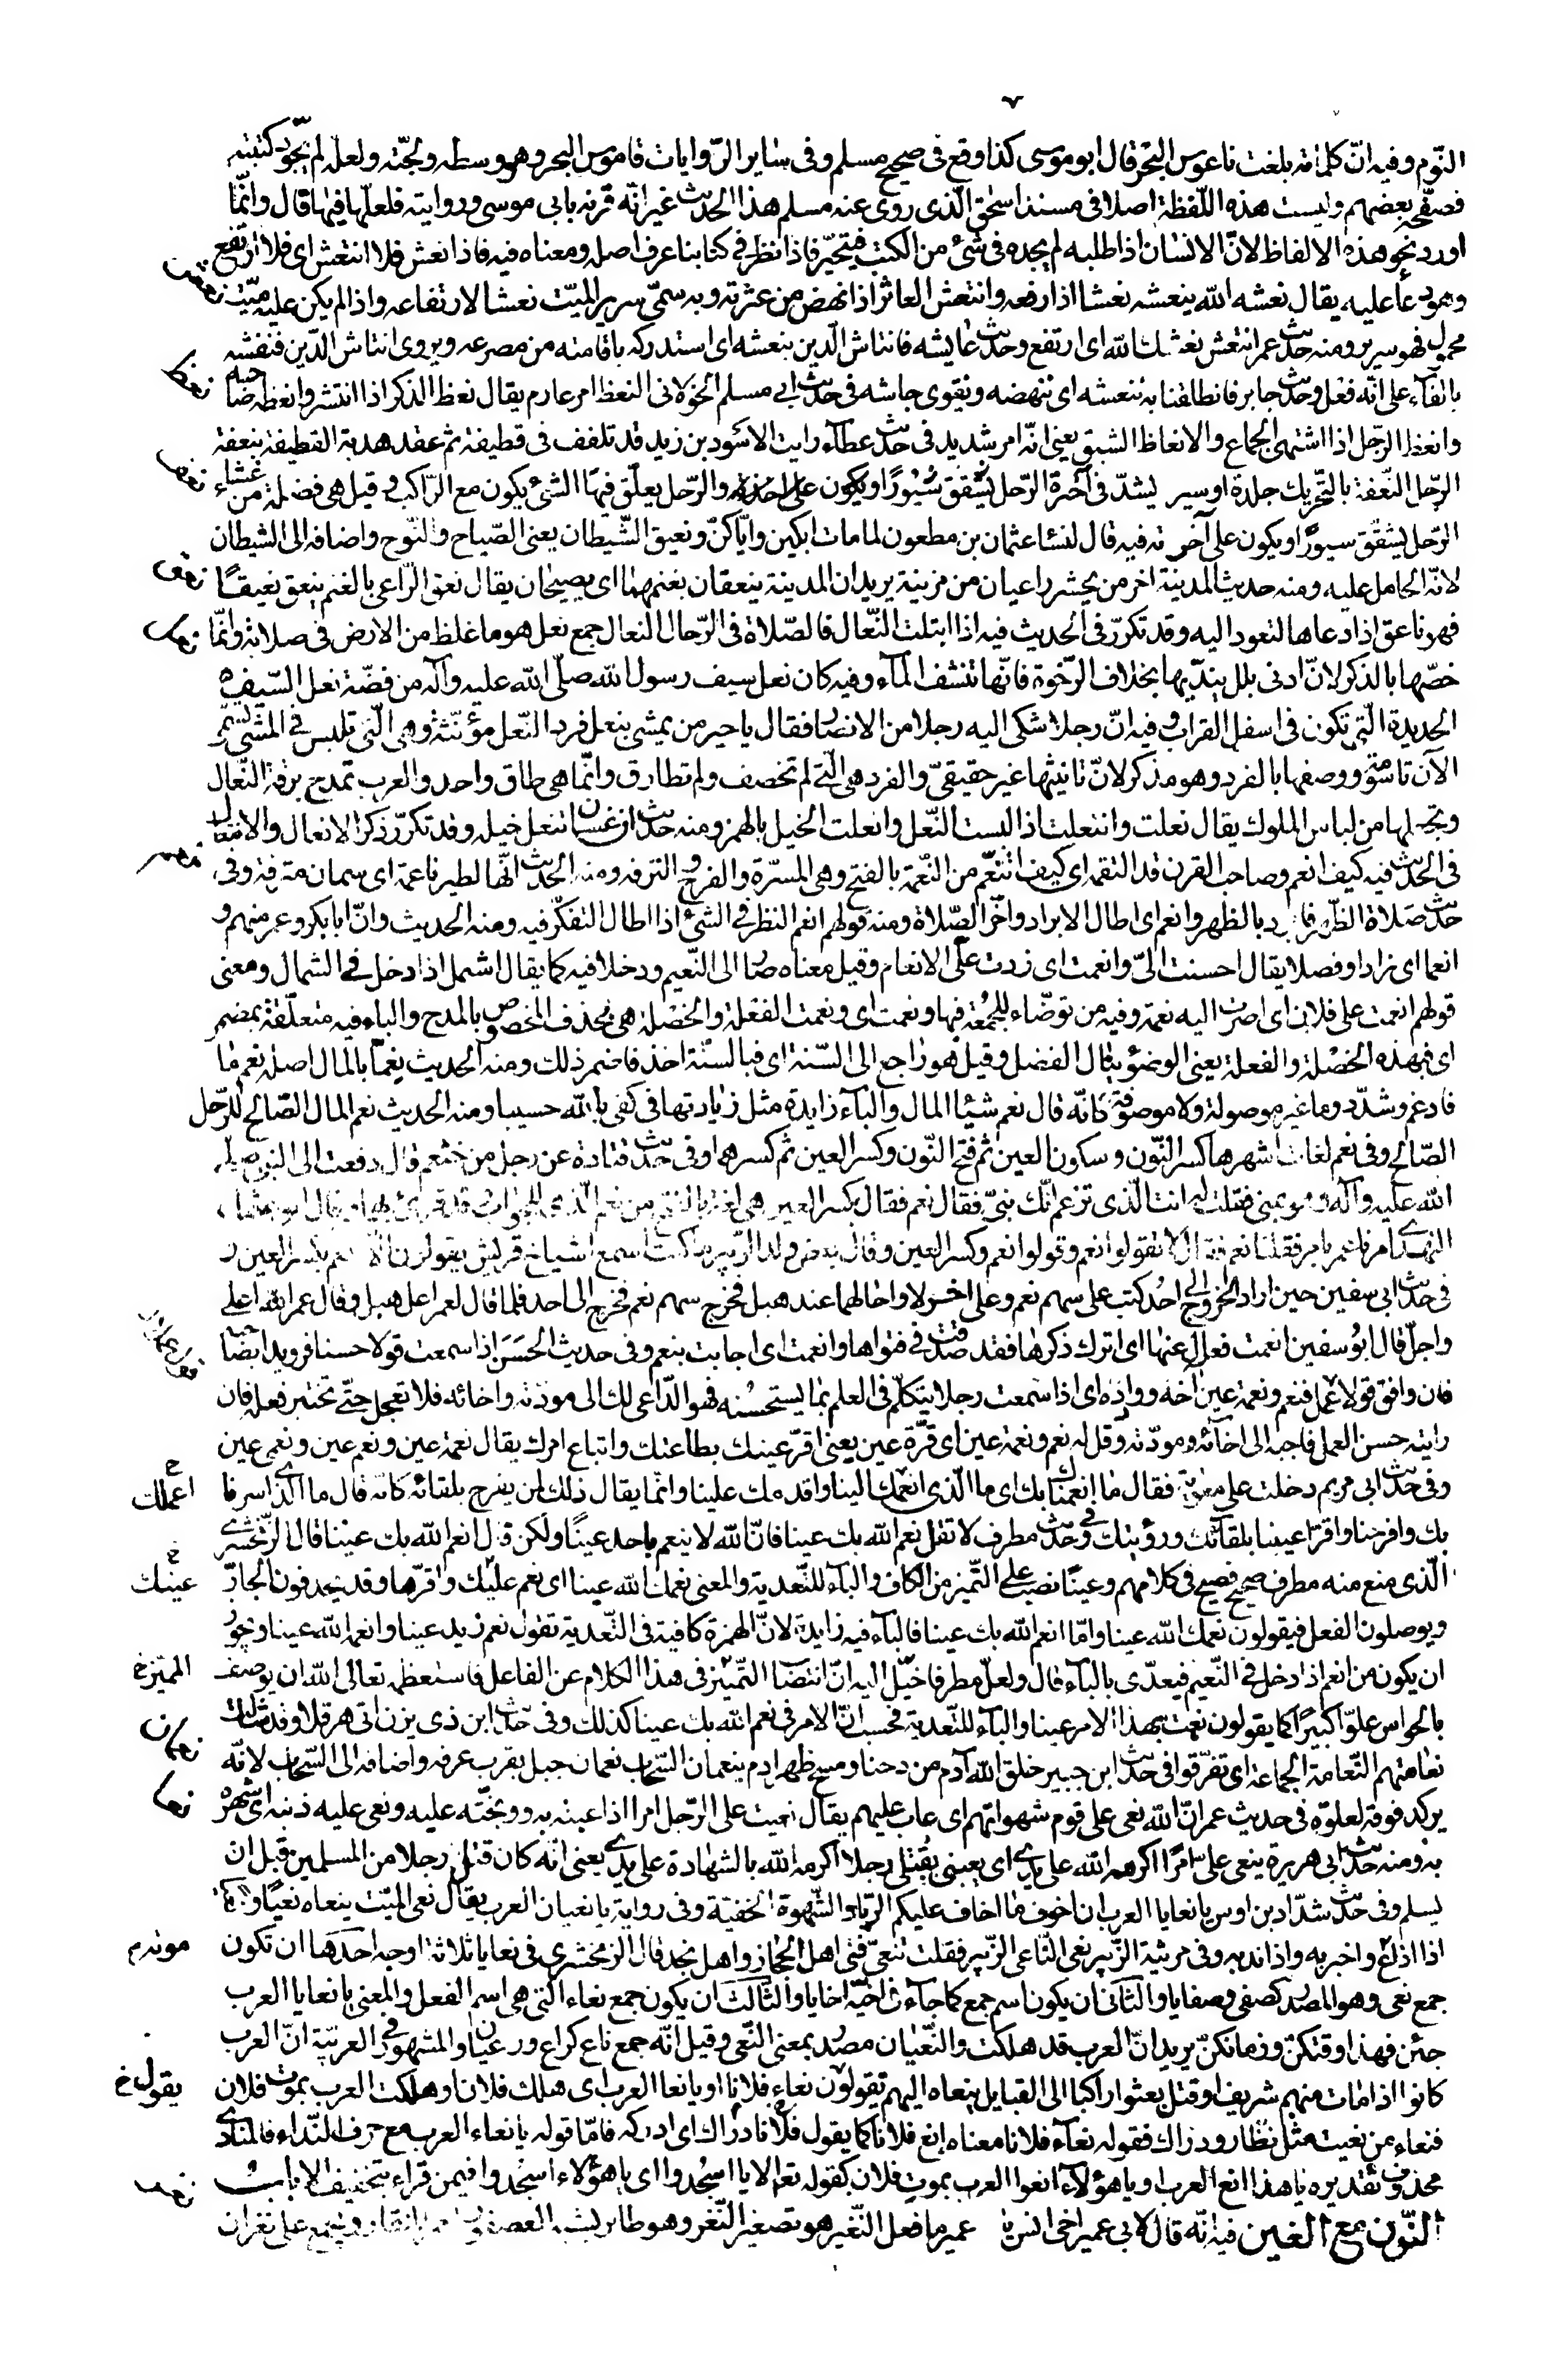 النّوم وفيه انّ كلماته بلغت ناعوس البحر قال ابو موسى كذا وقع فى صحيح مسلم وفى ساير الرّوايات قاموس البحر وهو وسطه ولجّته ولعلّه لم يجوّد كتبته
فصحّفه بعضهم وليست هذه اللّفظة اصلا فى مسند اسحق الّذى روى عنه مسلم هذا الحديث غير انّه قرنه بابى موسى وروايته فلعلّها فيها قال وانّما
اورد نحو هذه الالفاظ لانّ الانسان اذا طلبه لم يجده فى شئ من الكتب فيتحيّر فاذا نظر فى كتابنا عرف اصله ومعناه فيه فاذا نعش فلا انتعش اى فلا ارتفع
وهو دعا عليه يقال نعشه الله ينعشه نعشا اذا رفعه وانتعش العاثر اذا نهض من عثرته وبه سمىّ سرير الميّت نعشا لارتفاعه واذا لم يكن عليه ميّت
محمول فهو سرير ومنه حديث عمر انتعش نعشك الله اى ارتفع وحديث عايشه فانتاش الدّين بنعشه اى استدركه باقامته من مصرعه ويروى انتاش الدّين فنعشه
بالفآء على انّه فعل وحديث جابر فانطلقنا به ننعشه اى ننهضه ونقوى جاشه فى حديث ابى مسلم الخولانى النعظ امر عارم يقال نعظ الذكر اذا انتشر وانعظه صاحبه
وانعظ الرّجل اذا اشتهى الجماع والانعاظ الشبق يعنى انّه امر شديد فى حديث عطآء رايت الاسود بن زيد قد تلفف فى قطيفة ثم عقد هدبة القطيفة بنعفة
الرّحل النّعفة بالتّحريك جلدة او سير يشدّ فى آخرة الرّحل يعلّق فيها الشئ يكون مع الرّاكب وقيل هى فضلة من غشاء
الرّحل يشقّق سيورًا ويكون على آخرته فيه قال لنسآء عثمان بن مظعون لما مات ابكين وايّاكنّ ونعيق الشّيطان يعنى الصّياح والنّوح واضافه الى الشيطان
لانّه الحامل عليه ومنه حديث المدينة اخر من يحشر راعيان من مزينة يريدان المدينة ينعقان بغنمهما اى يصيحان يقال نعق الرّاعى بالغنم ينعق نعيقًا
فهو ناعق اذا دعاها لتعود اليه وقد تكرّر فى الحديث فيه اذا ابتلت النّعال فالصّلاة فى الرّحال النعال جمع نعل هو ما غلظ من الارض فى صلابة وانّما
خصّها بالذكر لانّ ادنى بلل ينديّها بخلاف الرّخوة فانّها تنشف المآء وفيه كان نعل سيف رسول الله صلّى الله عليه وآله من فضّة نعل السّيف
الحديدة الّتى تكون فى اسفل القراب وفيه انّ رجلا شكى اليه رجلا من الانصار فقال يا خير من يمشى بنعل فرد النّعل مؤنّثة وهى الّتى تلبس فى المشى تسمّى
الآن تاسومة ووصفها بالفرد وهو مذكر لانّ تانيثها غير حقيقىّ والفرد هى الّتى لم تخصف ولم تطارق وانّما هى طاق واحد والعرب تمدح برقة النّعال
وتجعلها من لباس الملوك يقال نعلت وانتعلت اذا لبست النّعل وانعلت الخيل بالهمز ومنه حديث ان غسان تنعل خيله وقد تكرّر ذكر الانعال والانتعال
فى الحديث فيه كيف انعم وصاحب القرن قد التقمه اى كيف اتنعّم من النّعمة بالفتح وهى المسرّة والفرح والترفه ومنه الحديث انّها لطير ناعمة اى سمان مترفة وفى
حديث صلاة الظّهر فابرد بالظهر وانعم اى اطال الابراد واخّر الصّلاة ومنه قولهم انعم النظر فى الشئ اذا اطال التفكّر فيه ومنه الحديث وانّ ابا بكر وعمر منهم و
انعما اى زادا وفضلا يقال احسنت الىّ وانعمت اى زدت علىّ الانعام وقيل معناه صارا الى النّعيم ودخلا فيه كما يقال اشمل اذا دخل فى الشمال ومعنى
قولهم انعمت على فلان اى اصرت اليه نعمة وفيه من توضّاء للجمعة فبها ونعمت اى ونعمت الفعلة والخصلة هى فحذف المخصوص بالمدح والباء فيه متعلّقة بمضمر
اى فبهذه الخصلة والفعلة يعنى الوضوء ينال الفضل وقيل هو راجع الى السّنة اى فبالسنّة اخذ فاضمر ذلك ومنه الحديث نعمّا بالمال اصله نعم ما
فادغم وشدّد وما غير موصولة ولا موصوفة كانّه قال نعم شيئا المال والبآء زايدة مثل زيادتها فى كفى بالله حسيبا ومنه الحديث نعم المال الصّالح للرّجل
الصّالح وفى نعم لغات اشهرها كسر النّون وسكون العين ثم فتح النّون وكسر العين ثم كسرهما وفى حديث قتادة عن رجل من خثعم قال دفعت الى النبى صلى
الله عليه وآله وهو بمنى فقلت له انت الّذى تزعم انّك نبىّ فقال نعم فقال بكسر العين هى لغة
النهدى امرنا عمر بامر فقلنا نعم فقال لا تقولوا نعم وقولوا نعم وكسر العين وقال بعض ولد الزّبير ما كنت اسمع اشياخ قريش يقولون الّا نعم بكسر العين و
فى حديث ابى سفين حين اراد الخروج الى احد كتب على سهم نعم وعلى اخر لا واجالهما عند هبل فخرج سهم نعم فخرج الى احد فلما قال لعمر اعل هبل وقال عمر الله اعلى
واجلّ قال ابو سفين انعمت فعال عنها اى اترك ذكرها فقد صدقت فى فتواها وانعمت اى اجابت بنعم وفى حديث الحسن اذا سمعت قولا حسنا فرويدا بصاحبه
فان وافق قول عملا فنعم ونعمة عين آخه وواده اى اذا سمعت رجلا يتكلّم فى العلم بما يستحسنه فهو الدّاعى لك الى مودّته واخائه فلا تعجل حتّى تختبر فعله فان
رايته حسن العمل فاجبه الى اخآئه ومودّته وقل له نعم ونعمة عين اى قرّة عين يعنى اقرّ عينك بطاعتك واتباع امرك يقال نعمة عين ونعم عين ونعمى عين
وفى حديث ابى مريم دخلت على معوية فقال ما انعمنا بك اى ما الّذى اعملك الينا واقدمك علينا وانّما يقال ذلك لمن يفرح بلقائه كانّه قال ما الّذى اسرنا
بك وافرحنا واقرّ اعيننا بلقآئك ورؤيتك وفى حديث مطرف لا تقل نعم الله بك عينا فانّ الله لا ينعم باحد عينًا ولكن قل انعم الله بك عينا قال الزّمخشرى
الّذى منع منه مطرف صحيح فصيح فى كلامهم وعينًا نصب على التّميز من الكاف والبآء للتّعدية والمعنى نعمك الله عينا اى نعم عينك واقرّها وقد يحذفون الجارّ
ويوصلون الفعل فيقولون نعمك الله عينا وامّا انعم الله بك عينا فالبآء فيه زايدة لانّ الهمزة كافية فى التّعدية تقول نعم زيد عينا وانعمه الله عينا ويجوز
ان يكون من انعم اذا دخل فى النّعيم فيعدّى بالبآء قال ولعلّ مطرفا خيّل اليه انّ انتصاب التّميز فى هذا الكلام عن الفاعل فاستعظمه تعالى الله ان يوصف
بالحواس علوّا كبيرًا كما يقولون نعمت بهذا الامر عينا والبآء للتّعدية فحسب انّ الامر فى نعم الله بك عينا كذلك وفى حديث ابن ذى يزن اتى هرقلا وقد شالت
نعامتهم النّعامة الجماعة اى تفرّقوا فى حديث ابن جبير خلق الله آدم من دحنا ومسح ظهر ادم بنعمان السّحاب نعمان جبل بقرب عرفة واضافه الى السّحاب لانّه
يركد فوقه لعلوّه فى حديث عمر انّ الله نعى على قوم شهواتهم اى عاب عليهم يقال نعيت على الرّجل امرا اذا عبته به ووبخّته عليه ونعى عليه ذنبه اى شهره
به ومنه حديث ابى هريرة ينعى علىّ امرًا اكرمه الله على يدى اى يعيبنى بقتلى رجلا اكرمه الله بالشهادة على يدى يعنى انّه كان قتل رجلا من المسلمين قبل ان
يسلم وفى حديث شدّاد بن اوس يا نعايا العرب ان اخوف ما اخاف عليكم الرّياء والشّهوة الخفيّة وفى رواية يا نعيان العرب يقال نعى الميّت ينعاه نعيًا ونعيًّا
اذا اذاع واخبر به واذا ندبه وفى مرثية الزّبير نعى النّاعى الزّبير فقلت تنعى فتى اهل الحجاز واهل نجد قال الزمخشرى فى نعايا ثلاثة اوجه احدها ان تكون
جمع نعى وهو المصدر كصفى وصفايا والثانى ان يكون اسم جمع كما جآء فى اخيّة اخايا والثالث ان يكون جمع نعاء الّتى هى اسم الفعل والمعنى يا نعايا العرب
جئن فهذا وقتكنّ وزمانكنّ يريد انّ العرب قد هلكت والنّعيان مصدر بمعنى النّعى وقيل انّه جمع ناع كراع ورعيان والمشهور فى العربيّة انّ العرب
كانوا اذا مات منهم شريف او قتل بعثوا راكبا الى القبايل ينعاه اليهم يقولون نعاء فلانا او يا نعا العرب اى هلك فلان او هلكت العرب بموت فلان
فنعاء من نعيت مثل نظار ودراك فقوله نعآء فلانا معناه انع فلانا كما يقول دراك فلانا اى ادركه فامّا قوله يا نعاء العرب مع حرف النّداء فالمنادى
محذوف تقديره يا هذا انع العرب او يا هؤلآء انعوا العرب بموت فلان كقوله تعالى الا يا اسجدوا اى يا هؤلاء اسجدوا فيمن قراء بتخفيف الا باب
النّون مع الغين فيه انّه قال لابى عمير اخى انس يا عمير ما فعل النّغير هو تصغير النّغر وهو طائر يشبه العصفور احمر المنقار ويجمع على نغران
نعش
نعظ
نعف
نعق
نعل
نعم
اعملك
عينك
المميز خ
نعمان
نعا
موته م
يقول خ
نغر